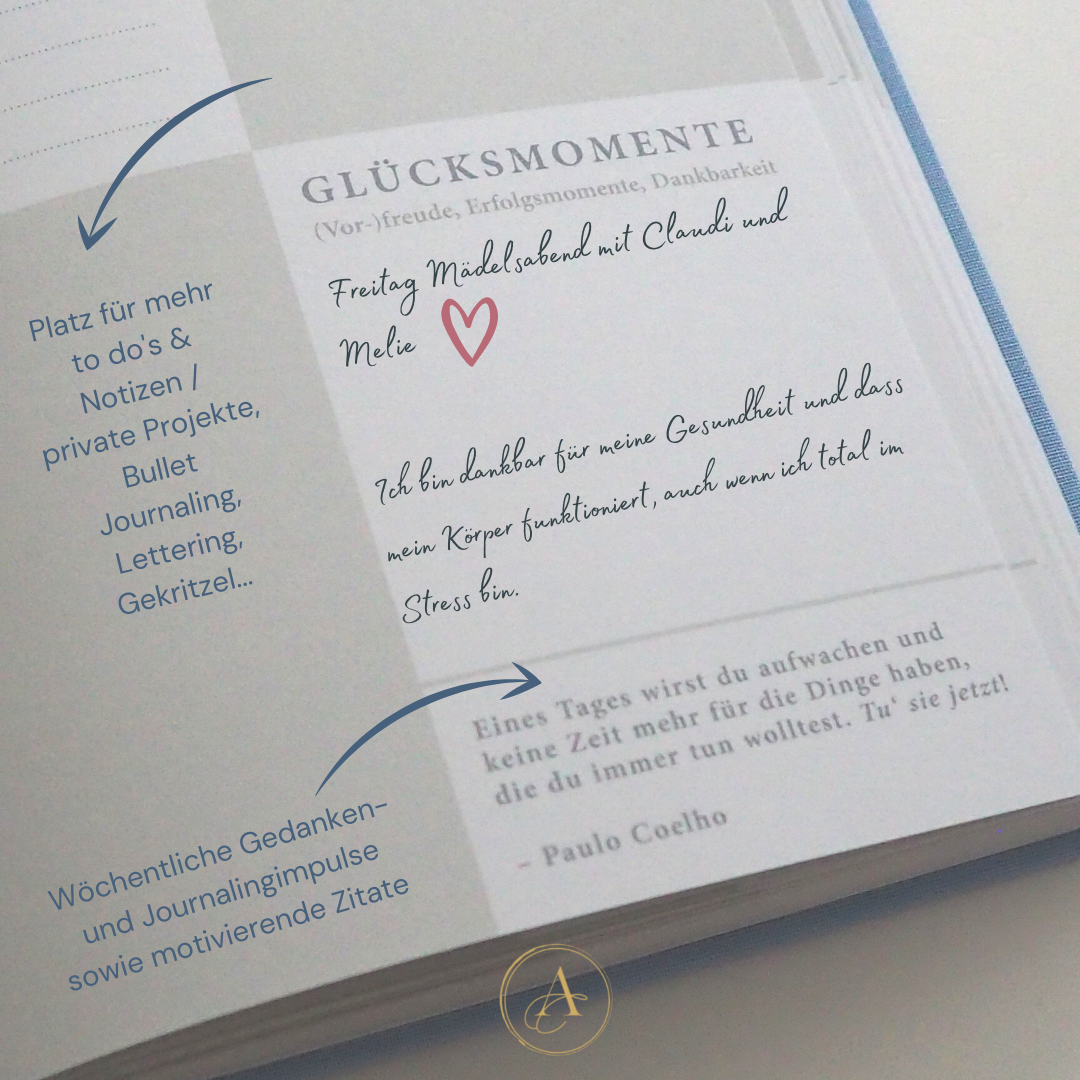 GLÜCKSMOMENTE
(Vor-)freude, Erfolgsmomente, Dankbarkeit
Freitag Mädelsabend mit Claudi und
Melie
Ich bin dankbar für meine Gesundheit und dass
mein Körper funktioniert, auch wenn ich total im
Stress bin.
Platz für mehr
to do's &
Notizen /
private Projekte,
Bullet
Journaling,
Lettering,
Gekritzel...
Eines Tages wirst du aufwachen und
keine Zeit mehr für die Dinge haben,
die du immer tun wolltest. Tu' sie jetzt!
– Paulo Coelho
Wöchentliche Gedanken-
und Journalingimpulse
sowie motivierende Zitate
A